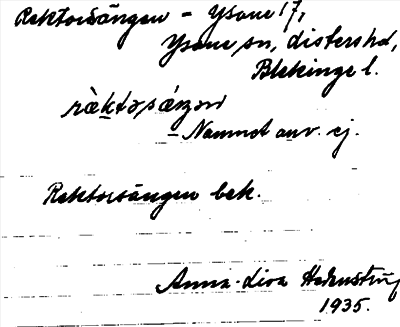 Rektorsängen - Ysane 17,
Ysane sn, Listers hd,
Blekinge l.
rὰktosǽŋən
- Namnet anv. ej.
Rektorsängen bek.
Anna-Lisa
1935.